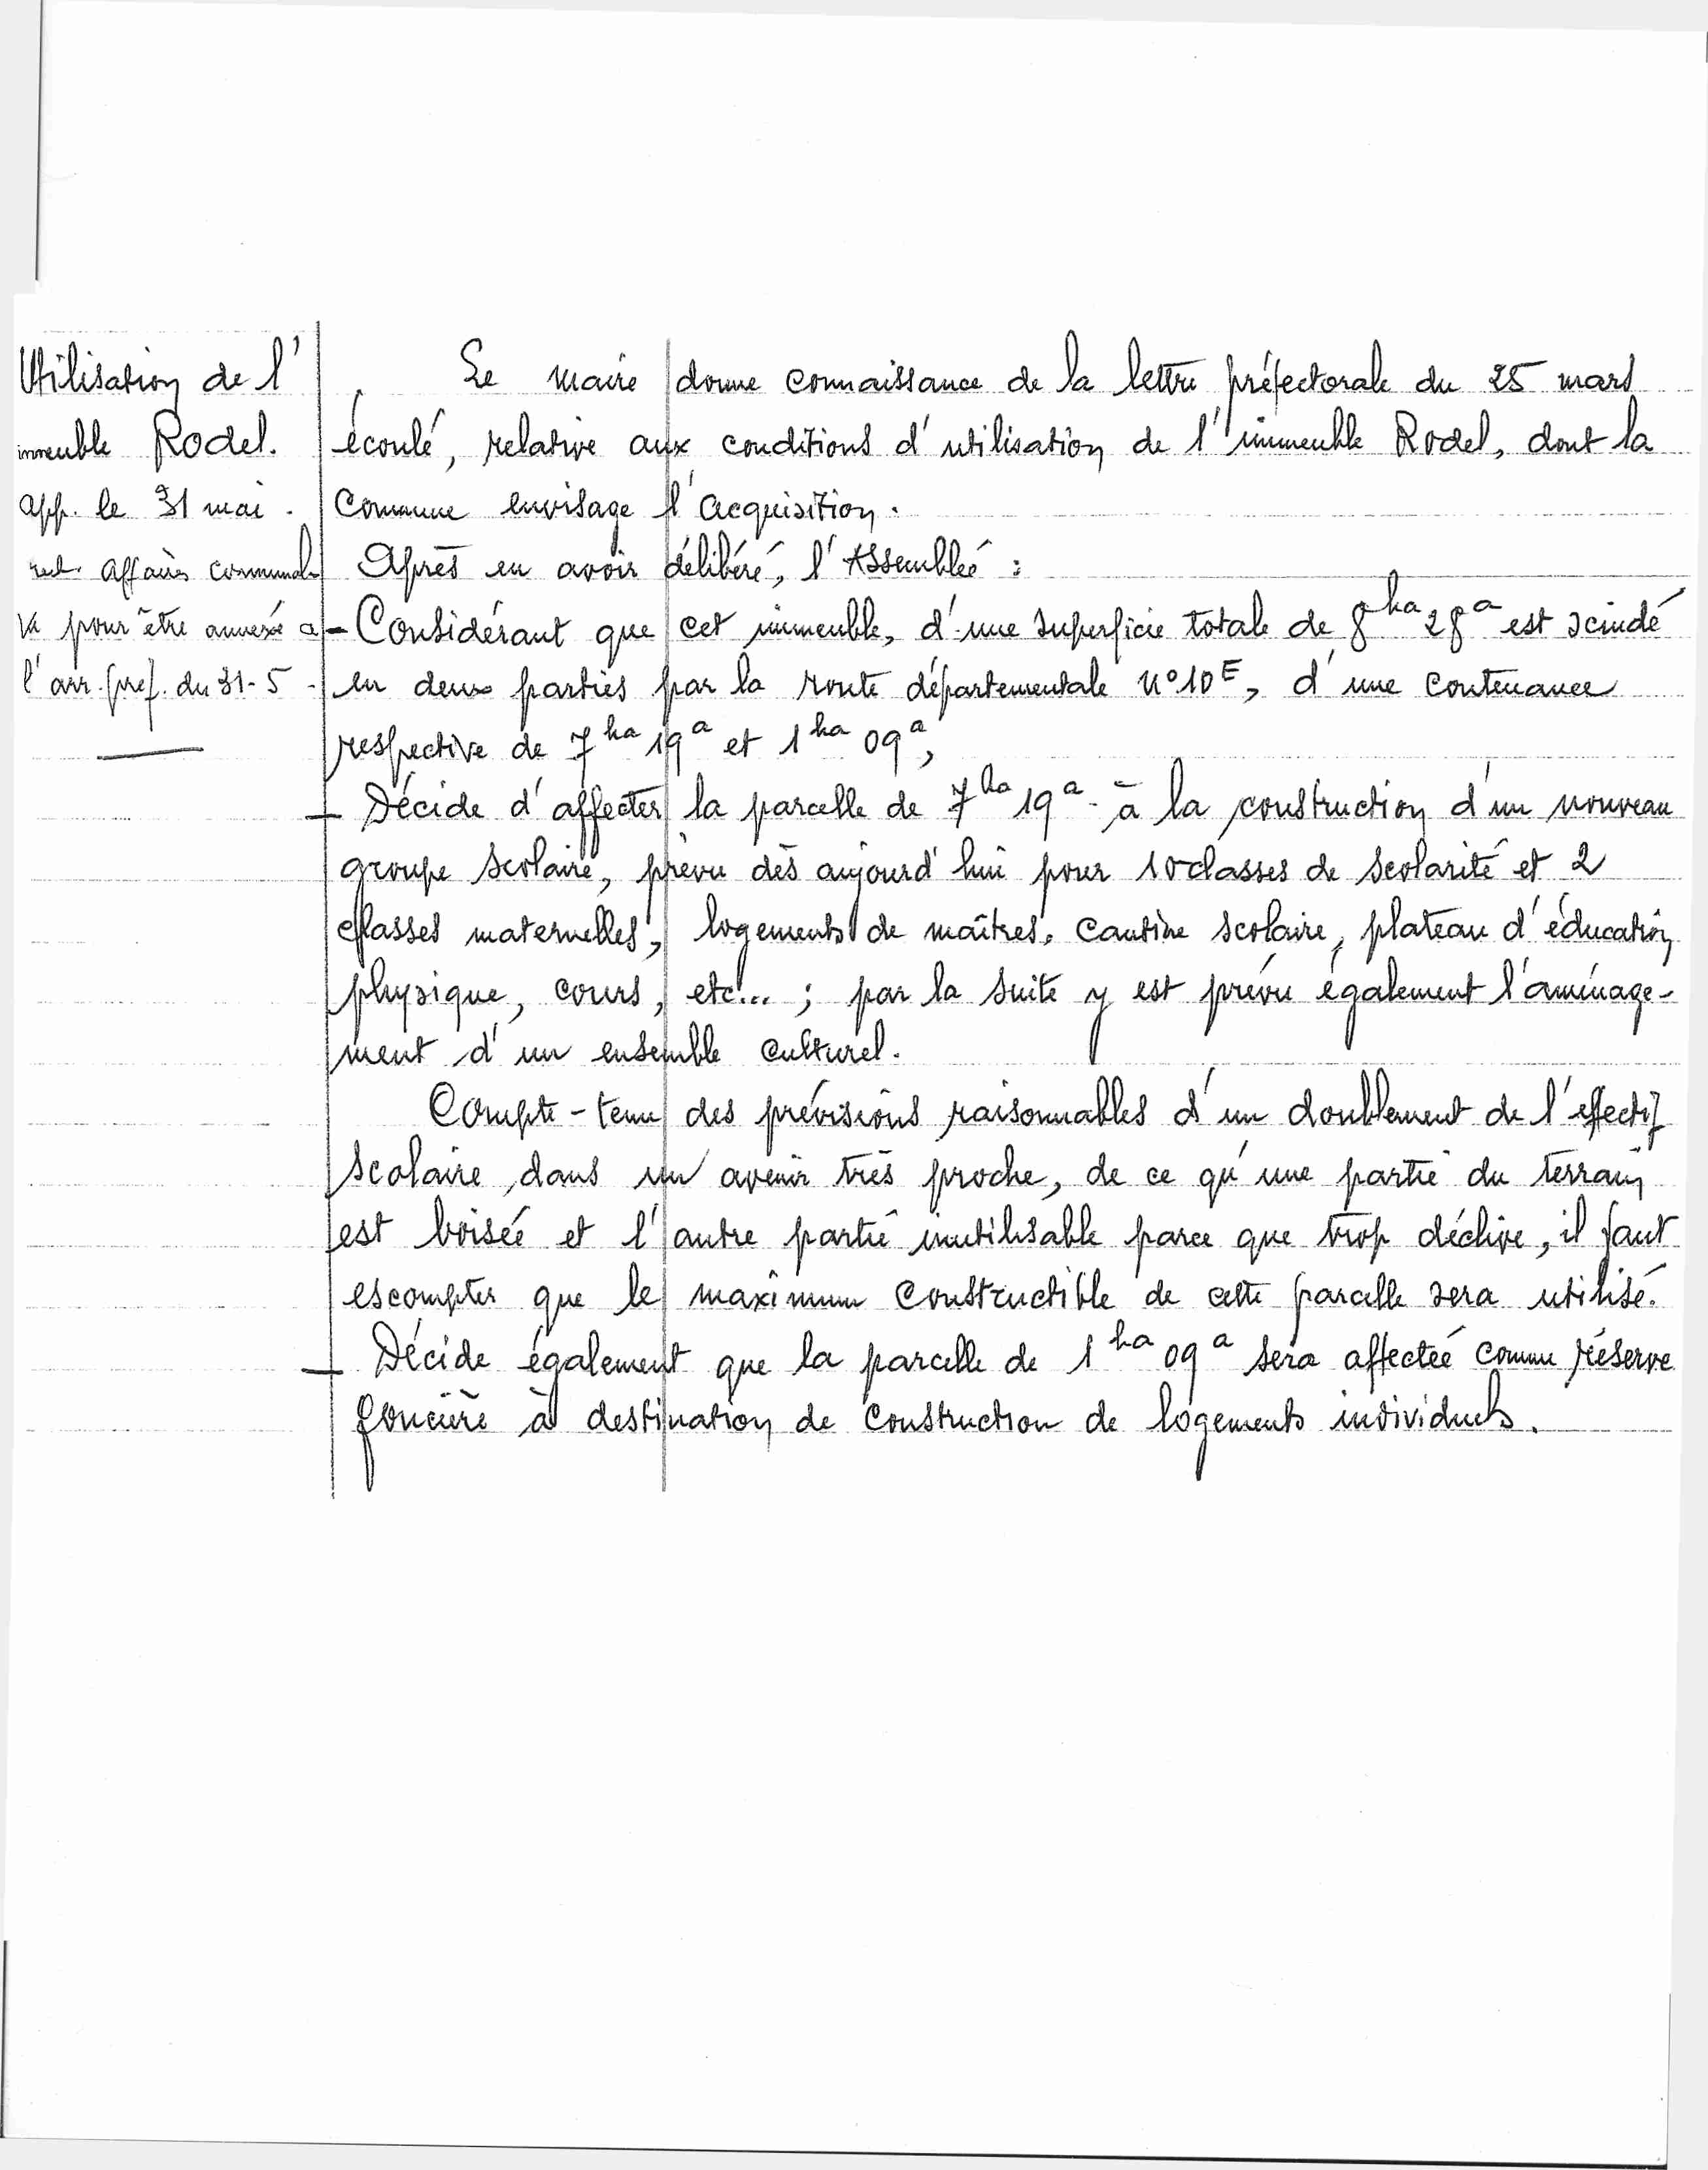 Utilisation de l'
immeuble Rodel.
app. le 31 mai.
Affaires communales
Vu pour être annexé a
l'arr. pref. du 31-5-
Le maire donne connaissance de la lettre préfectorale du 25 mars
écoulé, relative aux conditions d'utilisation de l'immeuble Rodel, dont la
Commune envisage l'acquisition.
Après en avoir délibéré, l'Assemblée :
- Considérant que cet immeuble, d'une superficie totale de 8ha 28a est scindé
en deux parties par la route départementale n°10E, d'une contenance
respective de 7ha 19a et 1ha 09a,
- Décide d'affecter la parcelle de 7ha 19a - à la construction d'un nouveau
groupe scolaire, prévu dès aujourd'hui pour 10 classes de scolarité et 2
classes maternelles, logements de maîtres, cantine scolaire, plateau d'éducation
physique, cours, etc... ; par la suite y est prévu également l'aménage-
ment d'un ensemble culturel.
Compte-tenu des prévisions raisonnables d'un doublement de l'effectif
scolaire, dans un avenir très proche, de ce qu'une partie du terrain
est boisée et l'autre partie inutilisable parce que trop déclive, il faut
escompter que le maximum constructible de cette parcelle sera utilisé.
- Décide également que la parcelle de 1ha 09a sera affectée comme réserve
foncière à destination de construction de logements individuels.